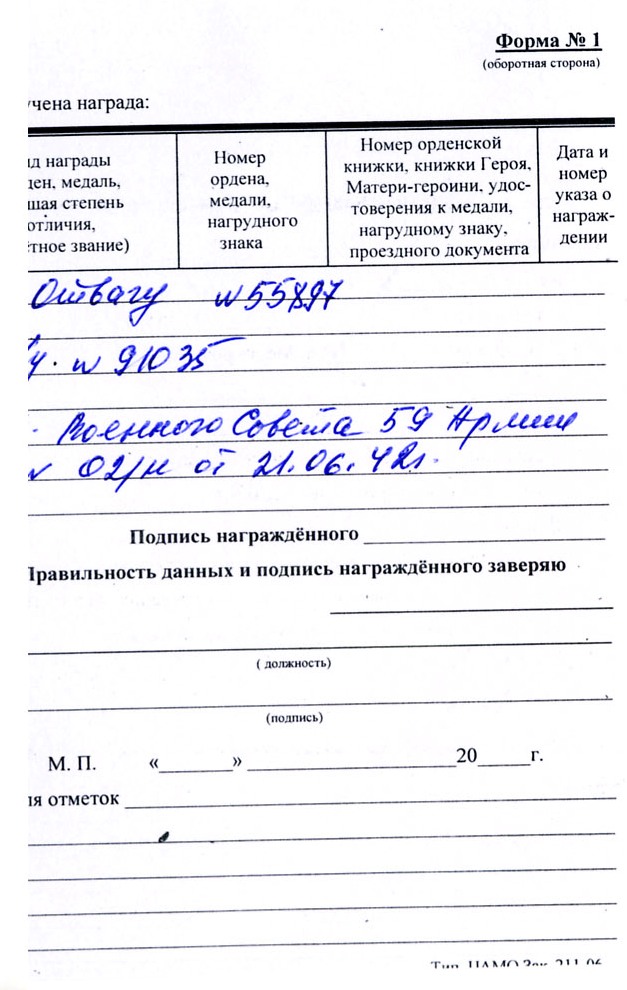 Форма № 1
(оборотная сторона)
учена награда:
ид награды
ден, медаль,
шая степень
отличия,
ётное звание)
Номер
ордена,
медали,
нагрудного
знака
Номер орденской
книжки, книжки Героя,
Матери-героини, удос-
товерения к медали,
нагрудному знаку,
проездного документа
Дата и
номер
указа о
награж-
дении
Отвагу № 55897
у. № 91035
Военного Совета 59 Армии
№ 02/н от 21.06.42г.
Подпись награждённого
Правильность данных и подпись награждённого заверяю
( должность)
(подпись)
М. П. «_______» ____________________20_____г.
ля отметок
Тип. ЦАМО Зак. 211-06